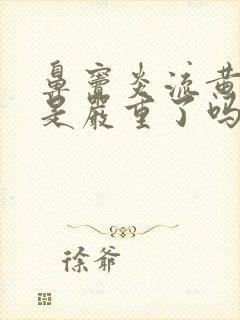 鼻窦炎流黄
是严重了吗
徐爷